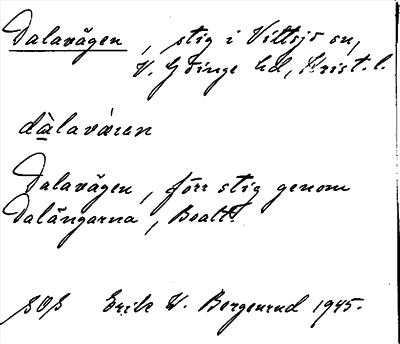 Dalavägen, stig i Vittsjö sn,
V. Göinge hd, Krist. l.
dàlaváran
Dalavägen, förr stig genom
Dalängarna, Boalt.
SOS Erik W. Bergenrud 1945.